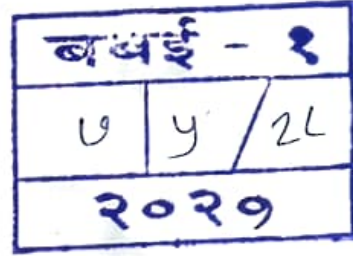 बबई - १
७ ५ / २८
२०२१